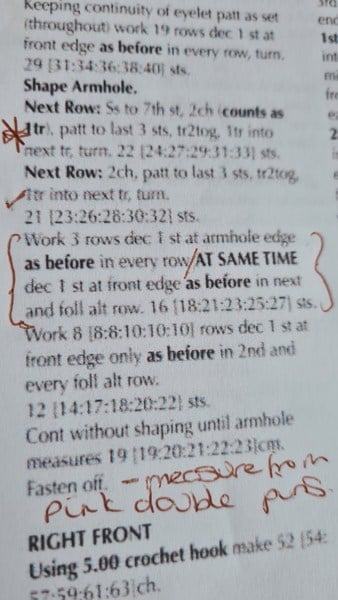 Keeping continuity of eyelet patt as set
(throughout) work 19 rows dec 1 st at
front edge as before in every row, turn.
29 [31:34:36:38:40] sts.
Shape Armhole.
Next Row: Ss to 7th st, 2ch (counts as
1tr), patt to last 3 sts, tr2tog, 1tr into
next tr, turn. 22 [24:27:29:31:33] sts.
Next Row: 2ch, patt to last 3 sts, tr2tog,
1tr into next tr, turn.
21 [23:26:28:30:32] sts.
Work 3 rows dec 1 st at armhole edge
as before in every row/AT SAME TIME
dec 1 st at front edge as before in next
and foll alt row. 16 [18:21:23:25:27] sts.
Work 8 [8:8:10:10:10] rows dec 1 st at
front edge only as before in 2nd and
every foll alt row.
12 [14:17:18:20:22] sts.
Cont without shaping until armhole
measures 19 [19:20:21:22:23]cm.
Fasten off. - measure from
pink double pins.
RIGHT FRONT
Using 5.00 crochet hook make 52 [54:
57:59:61:63]ch.